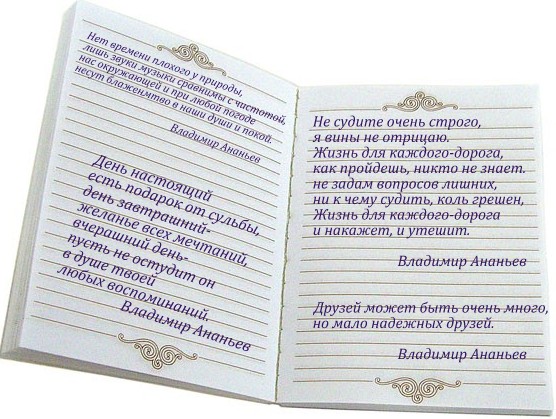 Нет времени плохого у природы,
лишь звуки музыки сравнимы с чистотой,
нас окружающей и при любой погоде
несут блаженмтво в наши души и покой.
Владимир Ананьев
День настоящий
есть подарок от судьбы,
день завтрашний-
желанье всех мечтаний,
вчерашний день-
пусть не остудит он
в душе твоей
любых воспоминаний.
Владимир Ананьев
Не судите очень строго,
я вины не отрицаю.
Жизнь для каждого-дорога,
как пройдешь, никто не знает.
не задам вопросов лишних,
ни к чему судить, коль грешен,
Жизнь для каждого-дорога
и накажет, и утешит.
Владимир Ананьев
Друзей может быть очень много,
но мало надежных друзей.
Владимир Ананьев